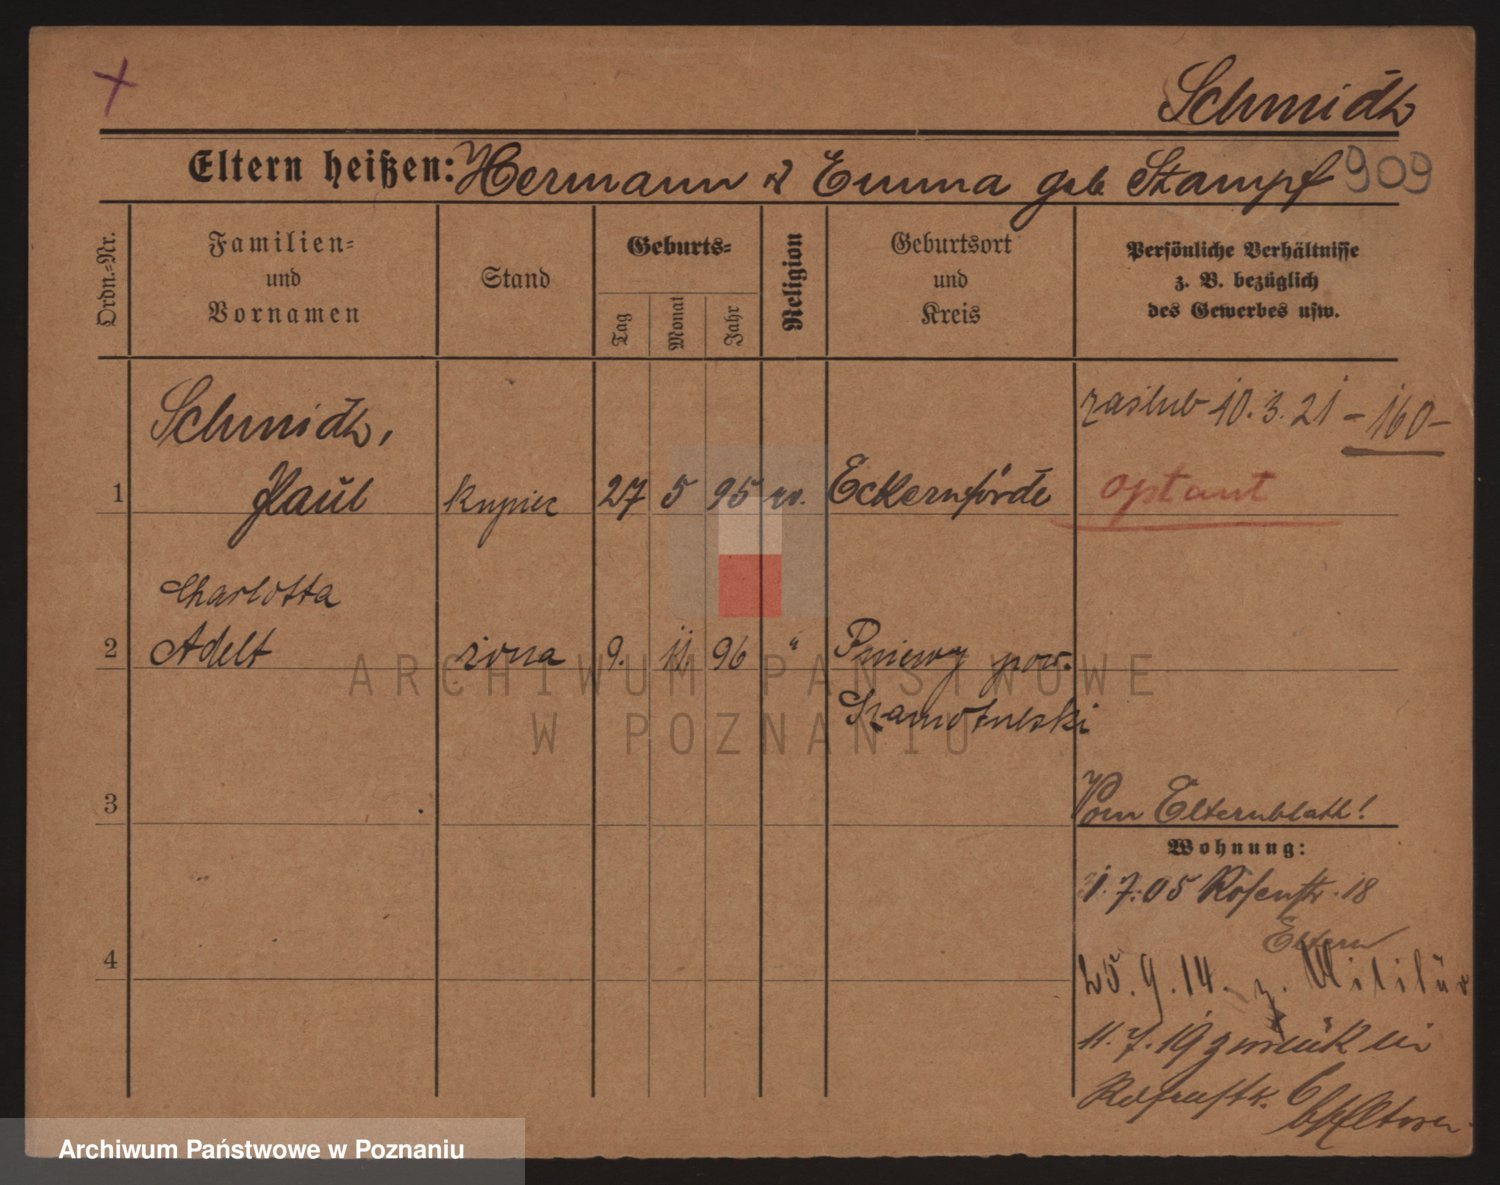 Schmidt
Eltern heißen: Hermann & Emma geb. Stampf 909
Ordn.=Nr.
Familien=
und
Vornamen
Stand
Geburts=
Tag
Monat
Jahr
Religion
Geburtsort
und
Kreis
Persönliche Verhältnisse
z. B. bezüglich
des Gewerbes usw.
zaślub 10.3.21 – 160 –
Schmidt,
1 Paul kupiec 27 5 95 ew. Eckernförde optant
Charlotta
2 Adelt żona 9. 11. 96 " Pniewy pow.
Szamotulski
3
Vom Elternblatt!
Wohnung:
1.7.05 Rosenstr. 18
Eltern
4
25.9.14. z. Militär
11.7.19 zurück in
ARCHIWUM PAŃSTWOWE
W POZNANIU
Archiwum Państwowe w Poznaniu